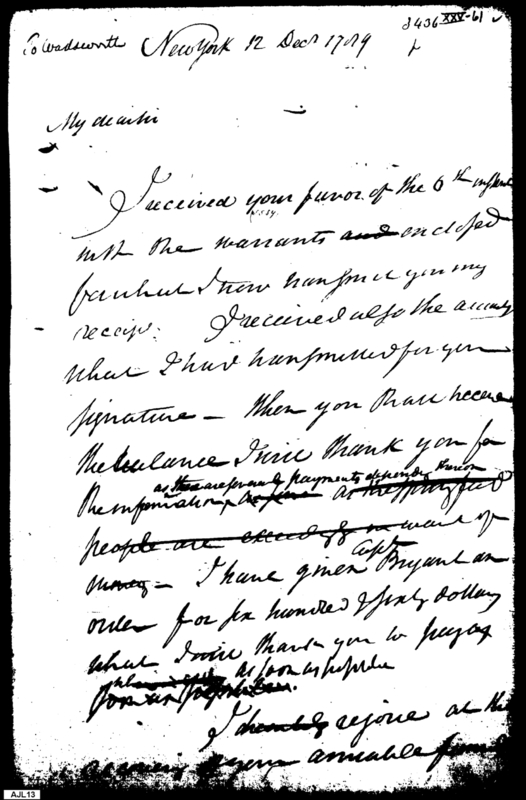 8436 XXV-61
To Wadsworth New York 12 Decr 1789
My dear sir
I received your favor of the 6th instant
with the warrants and enclosed
for which I now transmit you my
receipt. I received also the accounts
what I had transmitted for your
signature – When you shall receive
the balance I will thank you for
as there are several payments depending thereon
the information as the
people are exceedingly in want of
money – I have given Capt Bryant an
order for six hundred & sixty dollars
what I will thank you to pay
as soon as possible
I rejoice at the
recovery of your amiable
AJL13